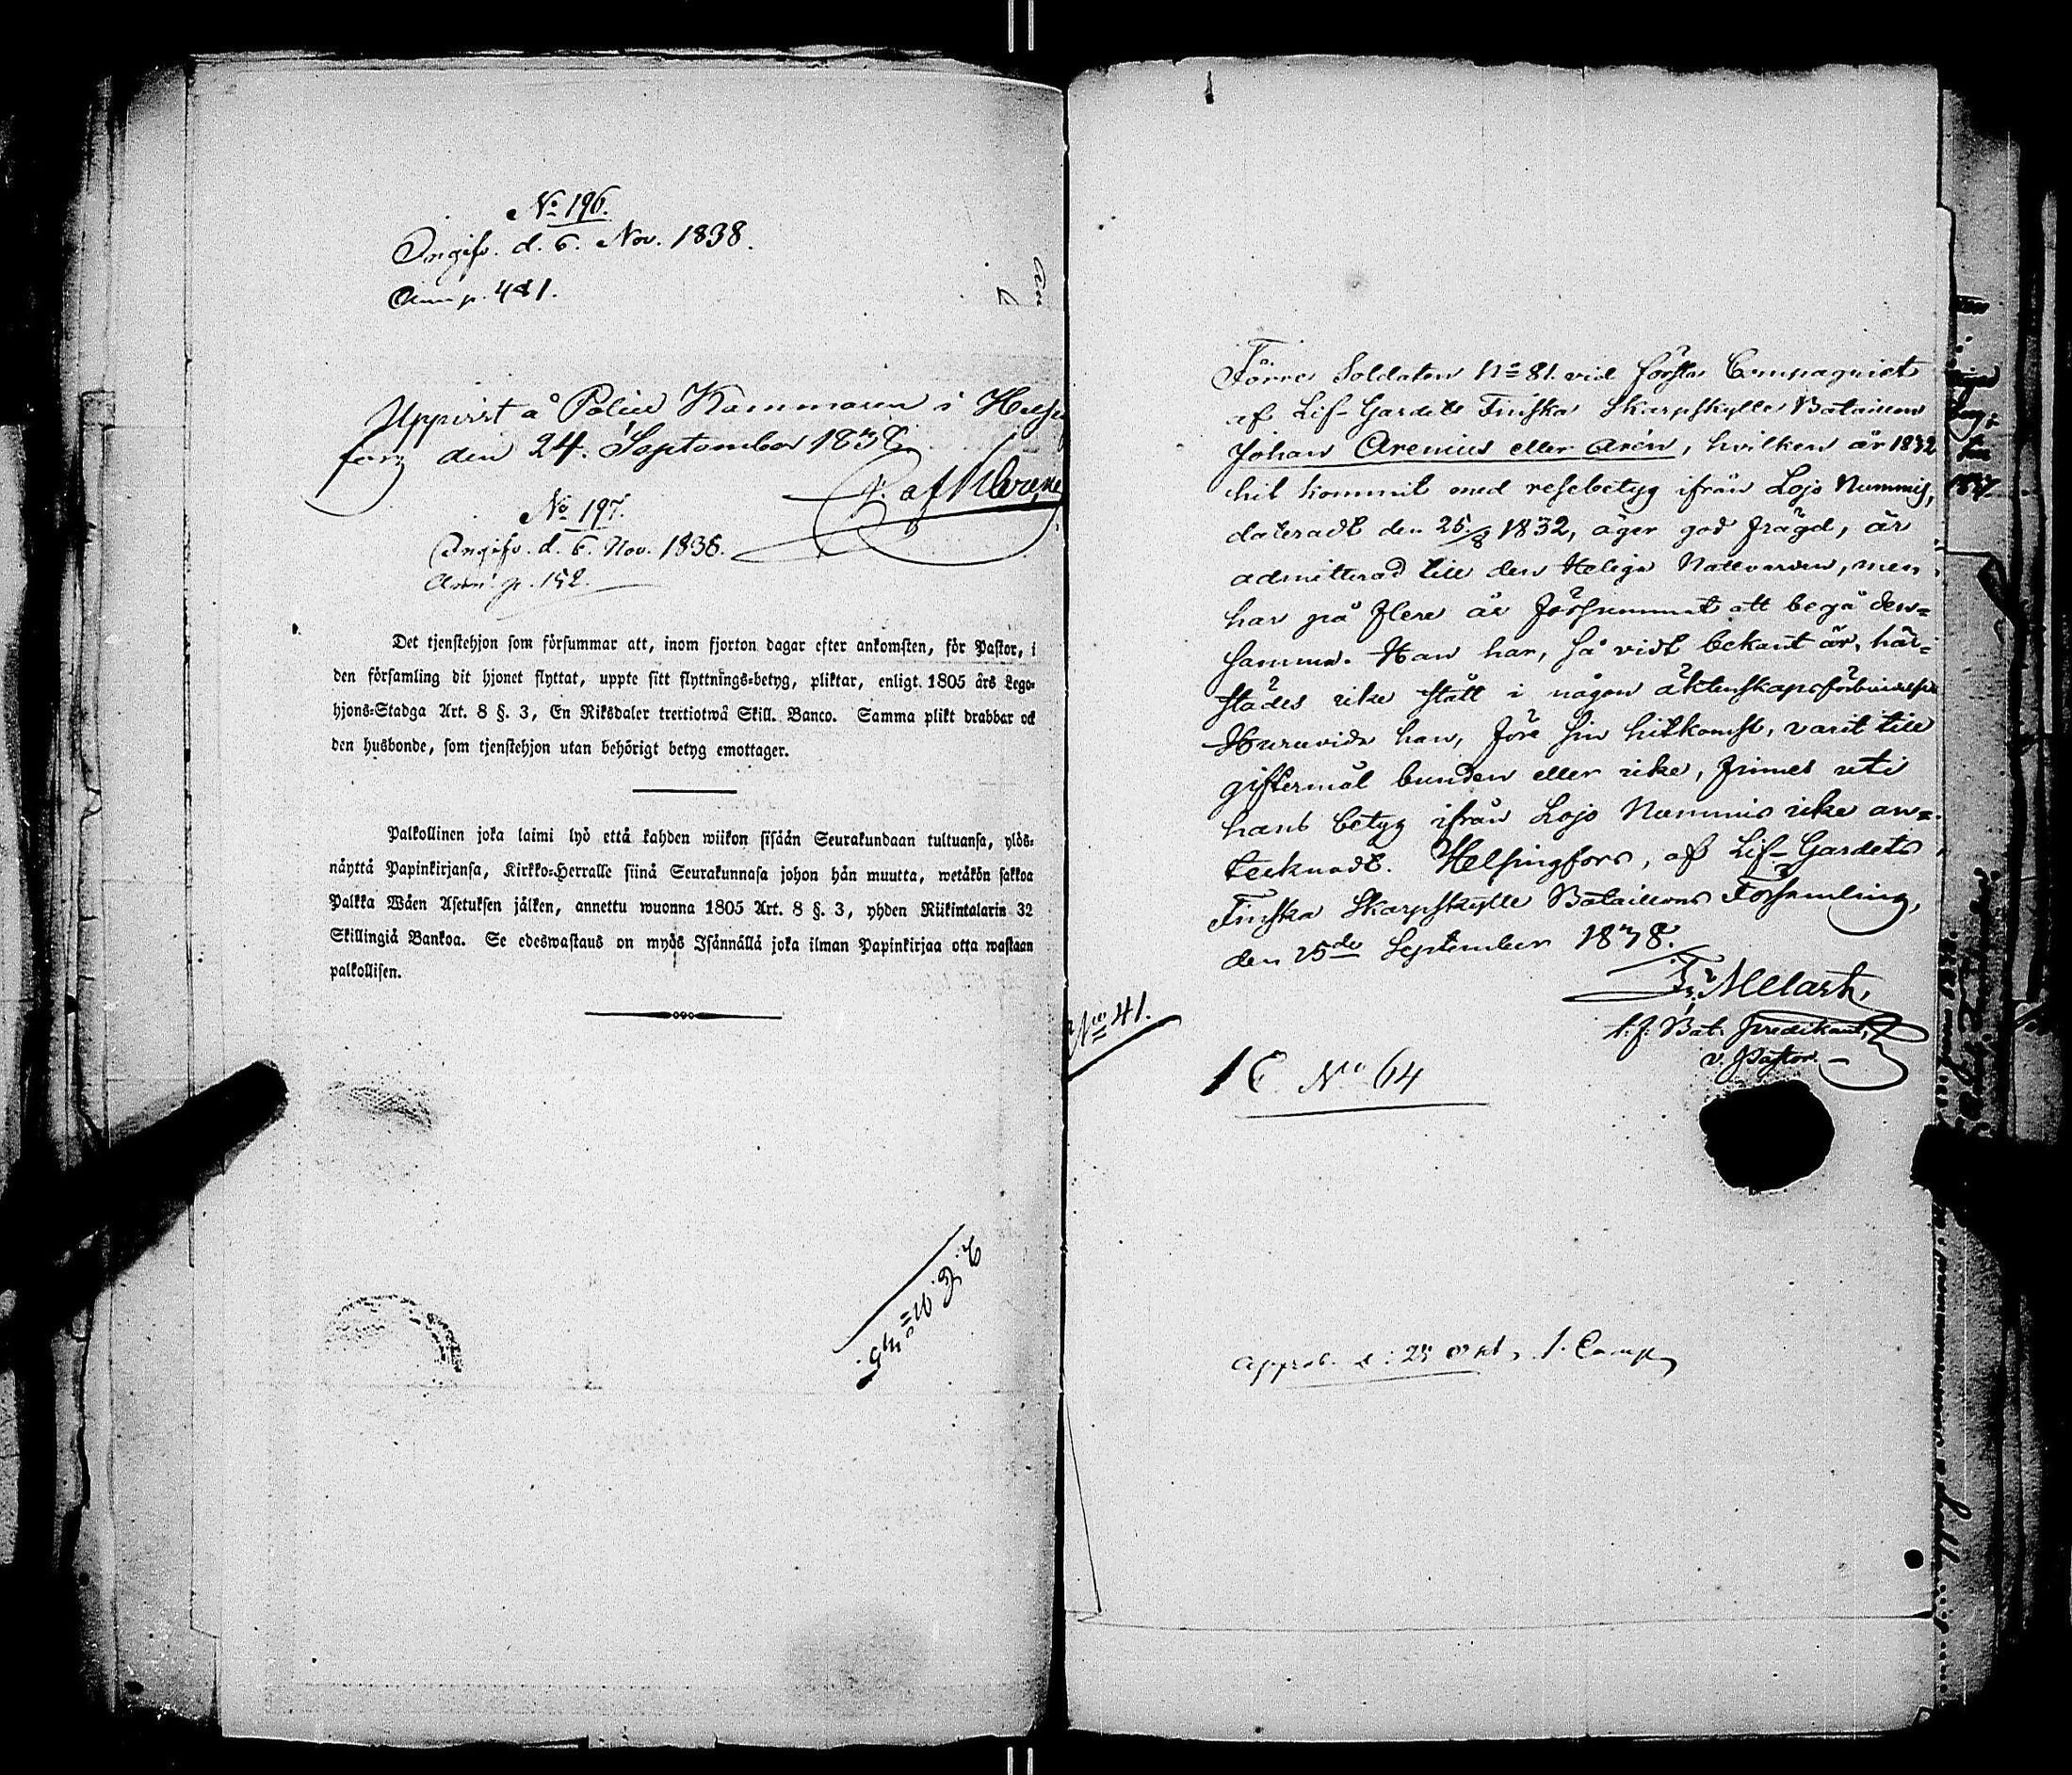 No 196.
Ingifv. d. 6. Nov. 1838.
Ann p. 481.
Uppvist å Police Kammaren i Helsing
fors den 24. September 1838.
No 197.
Ingifv. d. 6. Nov. 1838.
Ann. p. 152.
Det tjenstehjon som försummar att, inom fjorton dagar efter ankomsten, för Pastor, i
den församling dit hjonet flyttat, uppte sitt flyttnings-betyg, pliktar, enligt 1805 års Lego-
hjons-Stadga Art. 8 §. 3, En Riksdaler trertiotwå Skill. Banco. Samma plikt drabbar ock
den husbonde, som tjenstehjon utan behörigt betyg emottager.
Palkollinen joka laimi lyö että kahden wiikon sisään Seurakundaan tultuansa, ylös-
näyttä Papinkirjansa, Kirkko-Herralle siinä Seurakunnasa johon hän muutta, wetäkön sakkoa
Palkka Wäen Asetuksen jälken, annettu wuonna 1805 Art. 8 §. 3, yhden Riikintalarin 32
Skillingiä Bankoa. Se edeswastaus on myös Isännällä joka ilman Papinkirjaa otta wastaan
palkollisen.
Förre Soldaten No 81. vid första Compagniet
af Lif-Gardets Finska Skarpskytte Bataillon
Johan Arenius eller Arén, hvilken år 1832
hit kommit med resebetyg ifrån Lojo Nummis,
dateradt den 25/8 1832, äger god frägd, är
admitterad till den Heliga Nattvarden, men
har på flere år försummat att begå den-
samma. Han har, så vidt bekant är, här-
städes icke stått i någon äktenskapsförbindelse
Huruvida han, före sin hitkomst, varit till
giftermål bunden eller icke, finnes uti
hans betyg ifrån Lojo Nummis icke an-
tecknadt. Helsingfors, af Lif-Gardets
Finska Skarpskytte Bataillons Församling,
den 25de September 1838.
Fr. Melart,
t. f. Bat. predikant,
v. Pastor.
No 41.
1 C No 64
Approb. d. 25 Okt. 1. Comp